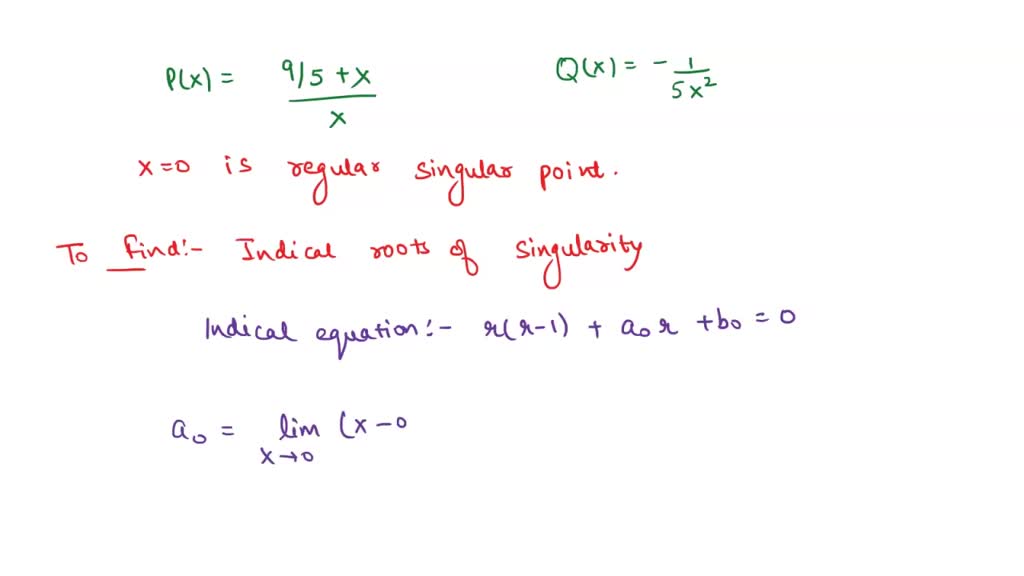 P(x) = (9/5 + x)/x    Q(x) = - 1/(5x²)
x=0 is regular singular point.
To find:- Indical roots of singularity
Indical equation:- r(r-1) + a₀r + b₀ = 0
a₀ = lim x→0 (x-0